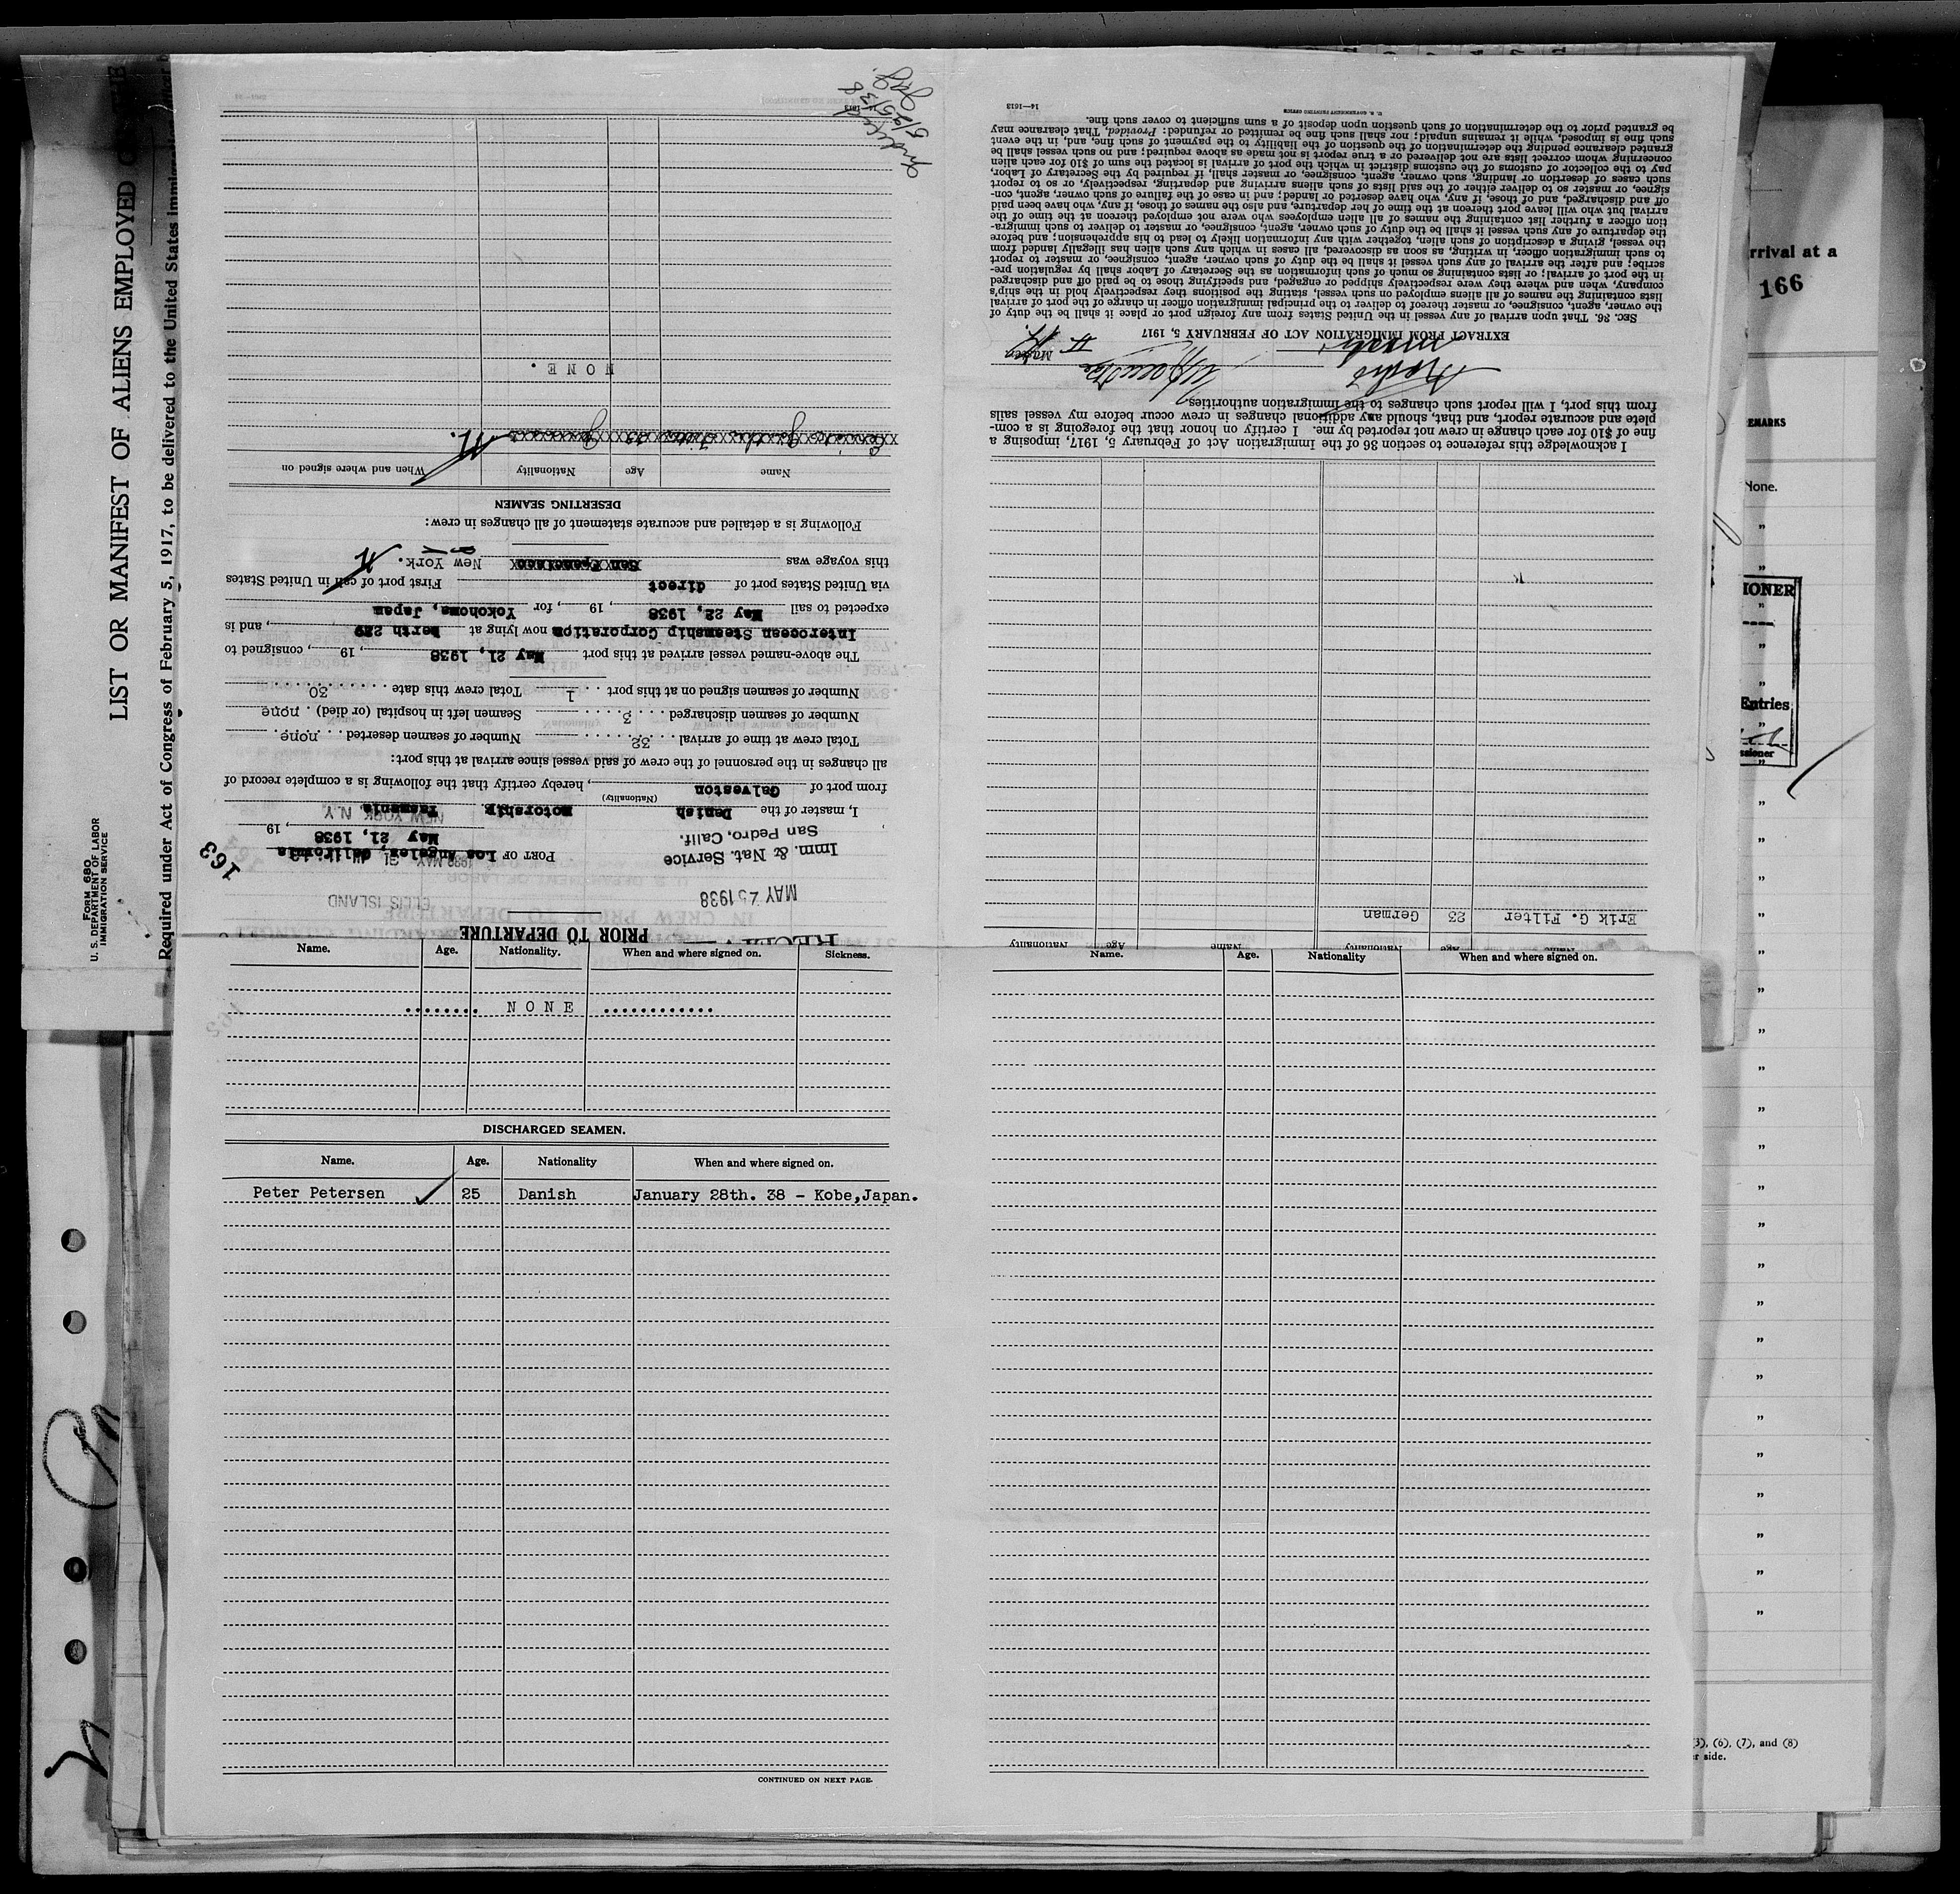 LIST OR MANIFEST OF ALIENS EMPLOYED
Required under Act of Congress of February 5, 1917, to be delivered to the United States
FORM 680
U. S. DEPARTMENT OF LABOR
IMMIGRATION SERVICE
PRIOR TO DEPARTURE
MAY 25 1938
ELLIS ISLAND
Imm. & Nat. Service
San Pedro, Calif.
PORT OF Los Angeles, California
163
May 21, 1938, 19
NEW YORK N.Y.
I, master of the Danish motorship Tasmania
(Nationality)
from port of Galveston, hereby certify that the following is a complete record of
all changes in the personnel of the crew of said vessel since arrival at this port:
Total crew at time of arrival 32 Number of seamen deserted none
Number of seamen discharged 3 Seamen left in hospital (or died) none
Number of seamen signed on at this port 1 Total crew this date 30
The above-named vessel arrived at this port May 21, 1938, 19, consigned to
Interocean Steamship Corporation now lying at berth 229, and is
expected to sail May 22, 1938, 19, for Yokohoma, Japan
via United States port of direct First port of call in United States
this voyage was San Francisco New York.
Following is a detailed and accurate statement of all changes in crew:
DESERTING SEAMEN
Name Age Nationality When and where signed on
N O N E .
5/25/38
14—1613
Name Age Nationality Name Age Nationality
Erik G. Filter 23 German
I acknowledge this reference to section 36 of the Immigration Act of February 5, 1917, imposing a
fine of $10 for each change in crew not reported by me. I certify on honor that the foregoing is a com-
plete and accurate report, and that, should any additional changes in crew occur before my vessel sails
from this port, I will report such changes to the Immigration authorities.
Master
EXTRACT FROM IMMIGRATION ACT OF FEBRUARY 5, 1917
SEC. 36. That upon arrival of any vessel in the United States from any foreign port or place it shall be the duty of
the owner, agent, consignee, or master thereof to deliver to the principal immigration officer in charge of the port of arrival
lists containing the names of all aliens employed on such vessel, stating the positions they respectively hold in the ship's
company, when and where they were respectively shipped or engaged, and specifying those to be paid off and discharged
in the port of arrival; or lists containing so much of such information as the Secretary of Labor shall by regulation pre-
scribe; and after the arrival of any such vessel it shall be the duty of such owner, agent, consignee, or master to report
to such immigration officer, in writing, as soon as discovered, all cases in which any such alien has illegally landed from
the vessel, giving a description of such alien, together with any information likely to lead to his apprehension; and before
the departure of any such vessel it shall be the duty of such owner, agent, consignee, or master to deliver to such immigra-
tion officer a further list containing the names of all alien employees who were not employed thereon at the time of the
arrival but who will leave port thereon at the time of her departure, and also the names of those, if any, who have been paid
off and discharged, and of those, if any, who have deserted or landed; and in case of the failure of such owner, agent, con-
signee, or master so to deliver either of the said lists of such aliens arriving and departing, respectively, or so to report
such cases of desertion or landing, such owner, agent, consignee, or master shall, if required by the Secretary of Labor,
pay to the collector of customs of the customs district in which the port of arrival is located the sum of $10 for each alien
concerning whom correct lists are not delivered or a true report is not made as above required; and no such vessel shall be
granted clearance pending the determination of the question of the liability to the payment of such fine, and, in the event
such fine is imposed, while it remains unpaid; nor shall such fine be remitted or refunded: Provided, That clearance may
be granted prior to the determination of such question upon deposit of a sum sufficient to cover such fine.
U. S. GOVERNMENT PRINTING OFFICE
14—1613
Name. Age. Nationality. When and where signed on. Sickness.
........ N O N E ............
DISCHARGED SEAMEN.
Name. Age. Nationality When and where signed on.
Peter Petersen 25 Danish January 28th. 38 - Kobe,Japan.
CONTINUED ON NEXT PAGE.
Name. Age. Nationality When and where signed on.
rrival at a
166
EMARKS
None.
IONER
Entries
ssioner
(3), (6), (7), and (8)
r side.